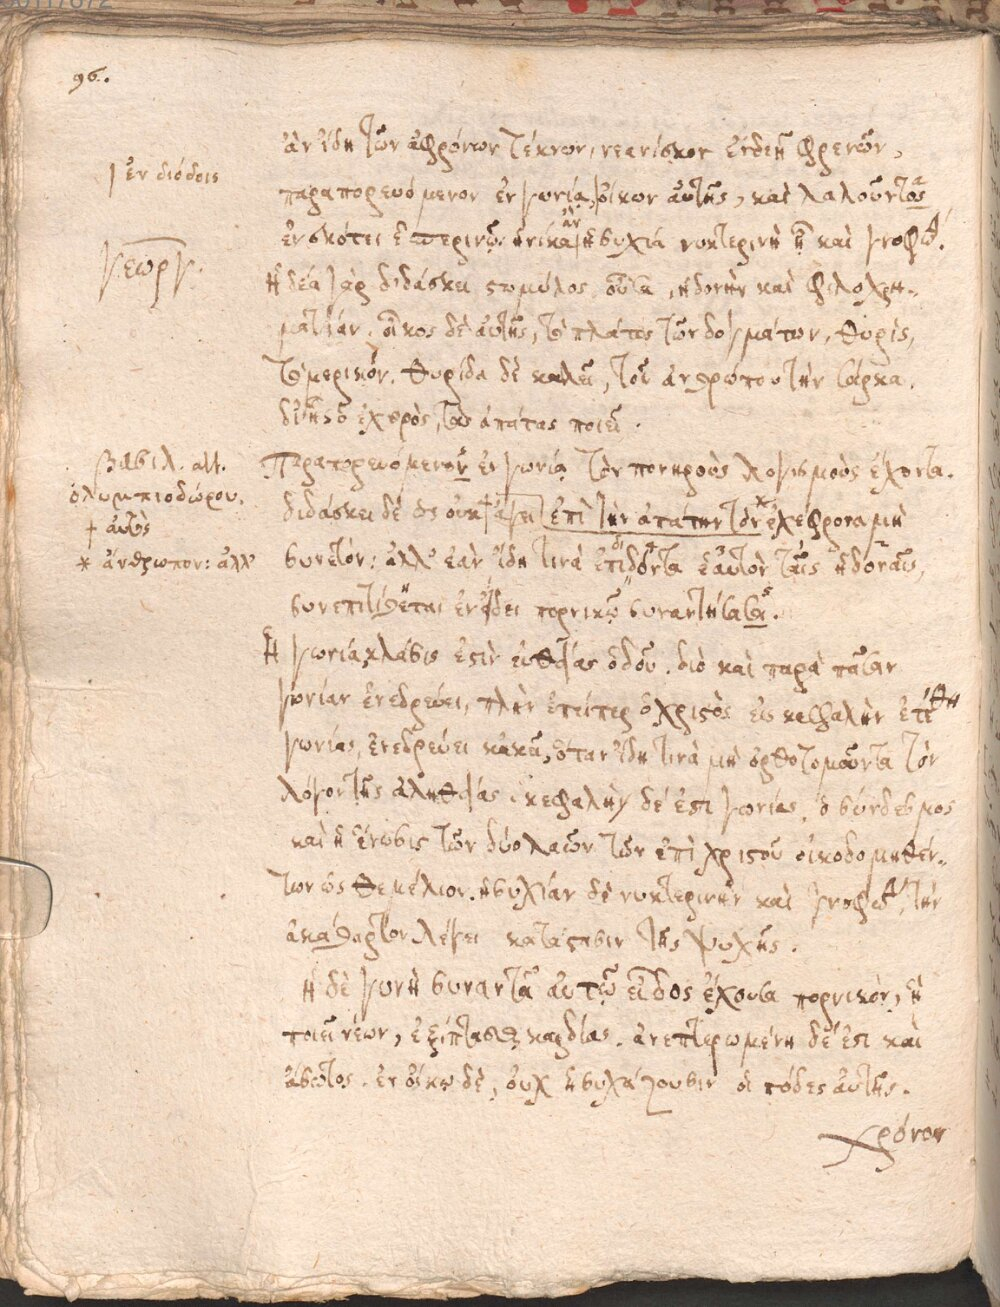 96.
ἂν ἴδη τῶν ἀφρόνων τέκνων, νεανίσκον ἐνδεῆ φρενῶν,
| ἐν διόδοις
παραπορευόμενον ἐν γωνίᾳ, | οἴκων αὐτῆς, καὶ λαλοῦντα
ἐν σκότει ἑσπερινῷ· ἡνίκα ἂν ἡσυχία νυκτερινὴ ᾖ καὶ γνοφώδ.
γεωργ.
ἡδέα γὰρ διδάσκει στωμύλος οὖσα, ἡδονὴν καὶ φιλοχρη-
ματίαν. οἶκος δὲ αὐτῆς, τὸ πλάτος τῶν δογμάτων. θυρὶς,
τὸ μερικόν. θυρίδα δὲ καλεῖ, τοῦ ἀνθρώπου τὴν σάρκα.
δι' ἧς ὁ ἐχθρὸς, τὰς ἀπάτας ποιεῖ.
βασιλ. αλλ.
ὀλυμπιοδώρου.
† αὐτὸς
* ἄνθρωπον: ἀλλ'
Παραπορευόμενον ἐν γωνίᾳ τὸν πονηροὺς λογισμοὺς ἔχοντα.
διδάσκει δὲ ὡς οὐκ † ἄγει ἐπὶ τὴν ἀπάτην τὸν * ἐχέφρονα μὴ
συνετόν: ἀλλ' ἐὰν ἴδη τινὰ ἐπιδόντα ἑαυτὸν ταῖς ἡδοναῖς,
συνεπιτίθεται ἐν εἴδει πορνικῷ συναντήσασα.
ἡ γωνία κλάσις ἐστὶν εὐθείας ὁδοῦ. διὸ καὶ παρὰ πᾶσαν
γωνίαν ἐνεδρεύει, πλὴν ἐπείπερ ὁ χριστὸς εἰς κεφαλὴν ἐτέθη
γωνίας, ἐνεδρεύει κἀκεῖ, ὅταν ἴδη τινὰ μὴ ὀρθοτομοῦντα τὸν
λόγον τῆς ἀληθείας. κεφαλὴν δέ ἐστι γωνίας, ὁ σύνδεσμος
καὶ ἡ ἕνωσις τῶν δύο λαῶν τῶν ἐπὶ χριστοῦ οἰκοδομηθέν-
των ὡς θεμέλιον. ἡσυχίαν δὲ νυκτερινὴν καὶ γνοφώδ. τὴν
ἀκάθαρτον λέγει κατάστασιν τῆς ψυχῆς.
ἡ δὲ γυνὴ συναντᾶ αὐτῷ εἶδος ἔχουσα πορνικόν, ἣ
ποιεῖ νέων, ἐξίπτασθαι καρδίας. ἀνεπτερωμένη δέ ἐστι καὶ
ἄσωτος. ἐν οἴκῳ δὲ, οὐχ ἡσυχάζουσιν οἱ πόδες αὐτῆς.
χρόνον